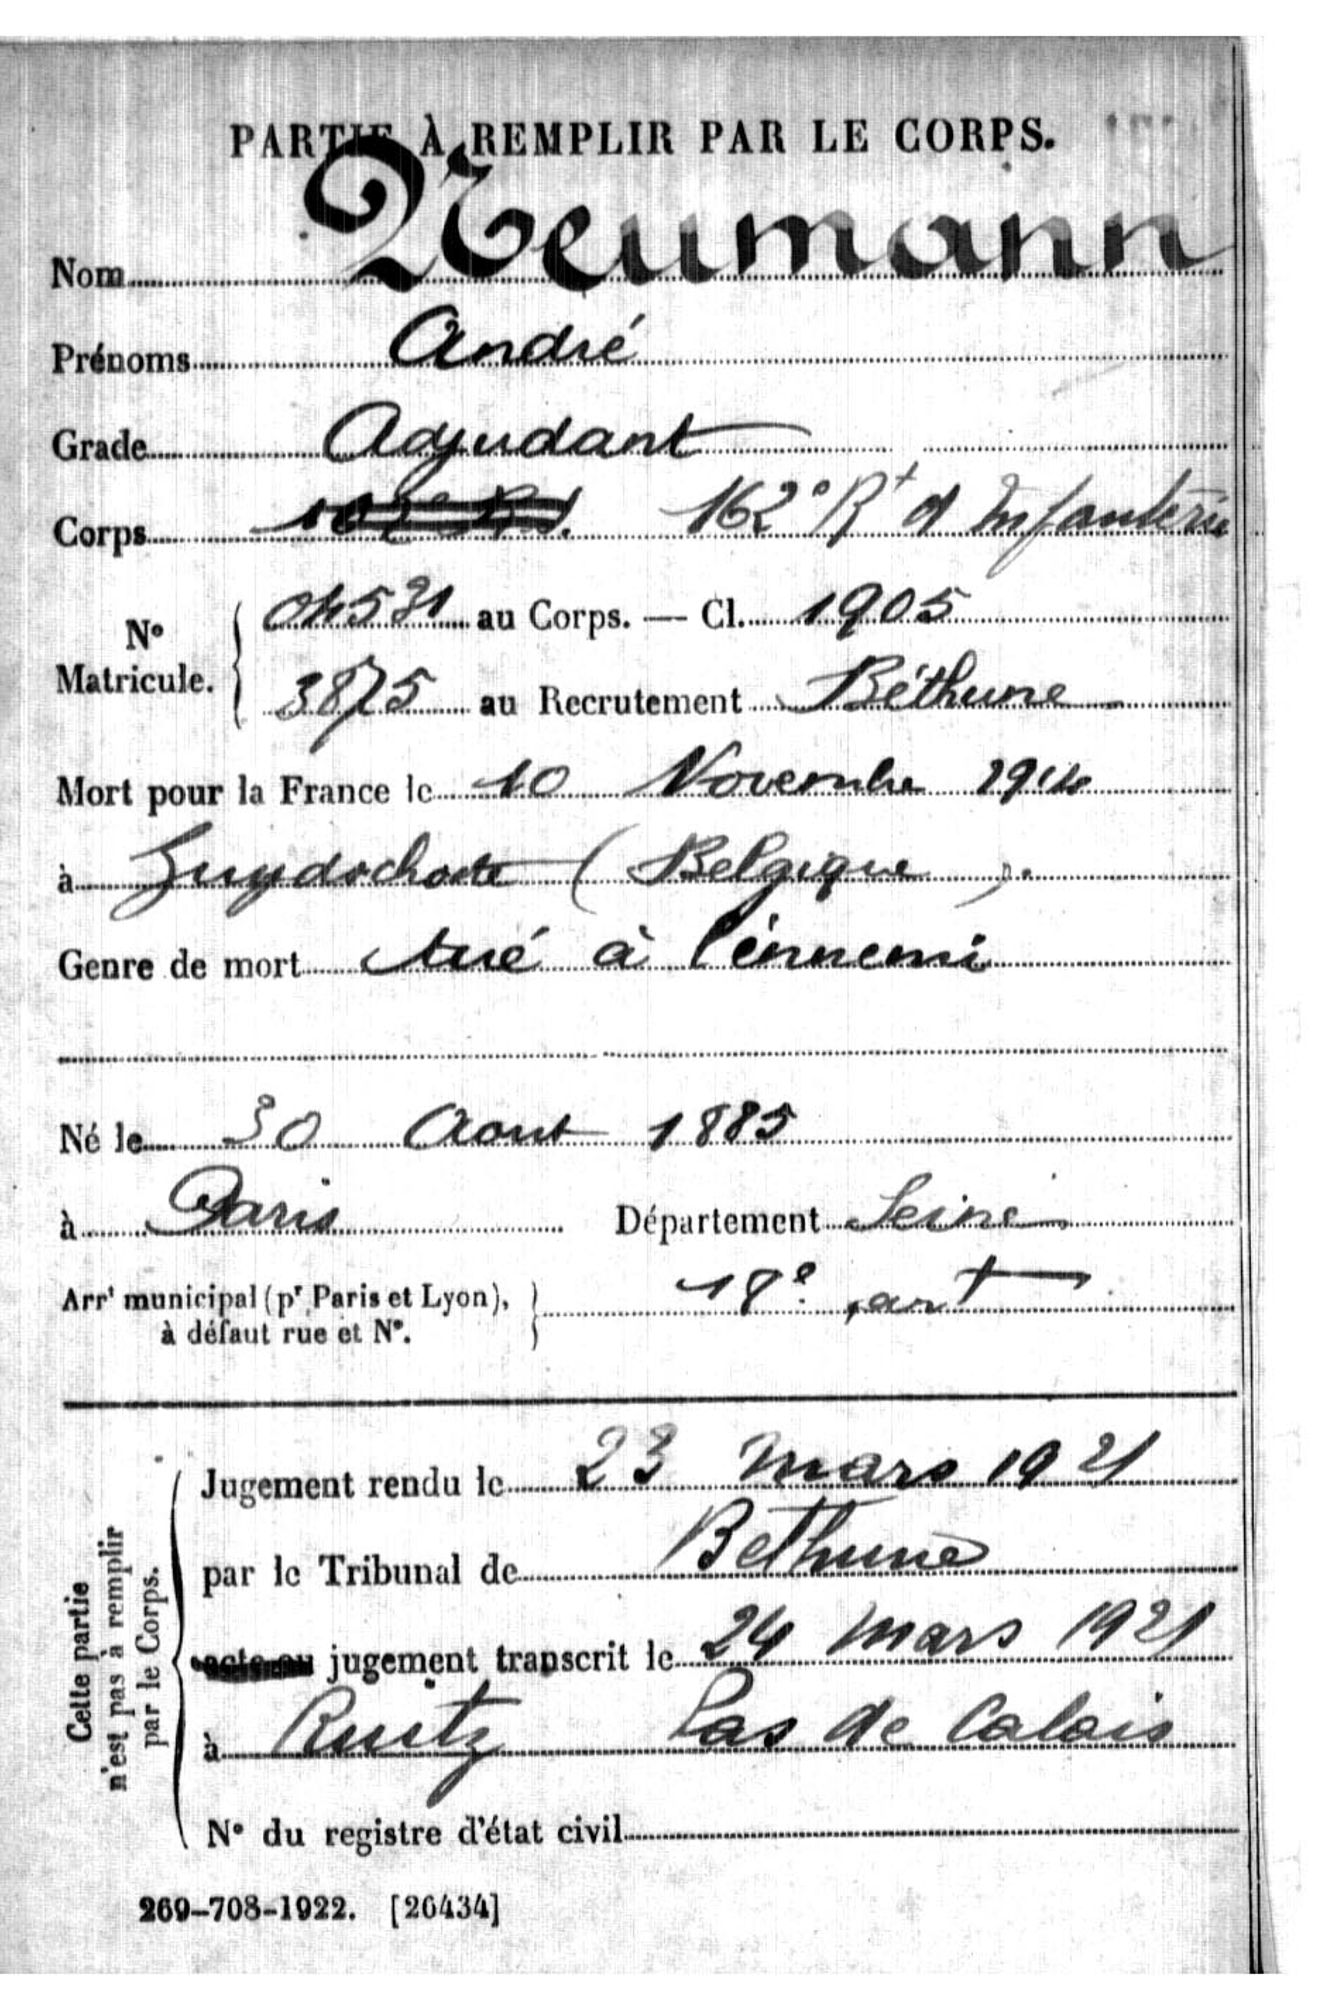 PARTIE À REMPLIR PAR LE CORPS.
Nom Neumann
Prénoms André
Grade Adjudant
Corps 162e Rt d'Infanterie
No Matricule. 04531 au Corps. — Cl. 1905
3875 au Recrutement Béthune
Mort pour la France le 10 Novembre 1914
à (Belgique).
Genre de mort tué à l'ennemi
Né le 30 Aout 1885
à Paris Département Seine
Arrt municipal (pr Paris et Lyon), 18e art
à défaut rue et No.
Cette partie
n'est pas à remplir
par le Corps.
Jugement rendu le 23 mars 1921
par le Tribunal de Bethune
acte ou jugement transcrit le 24 mars 1921
à Ruitz Pas de Calais
No du registre d'état civil
269-708-1922. [26434]